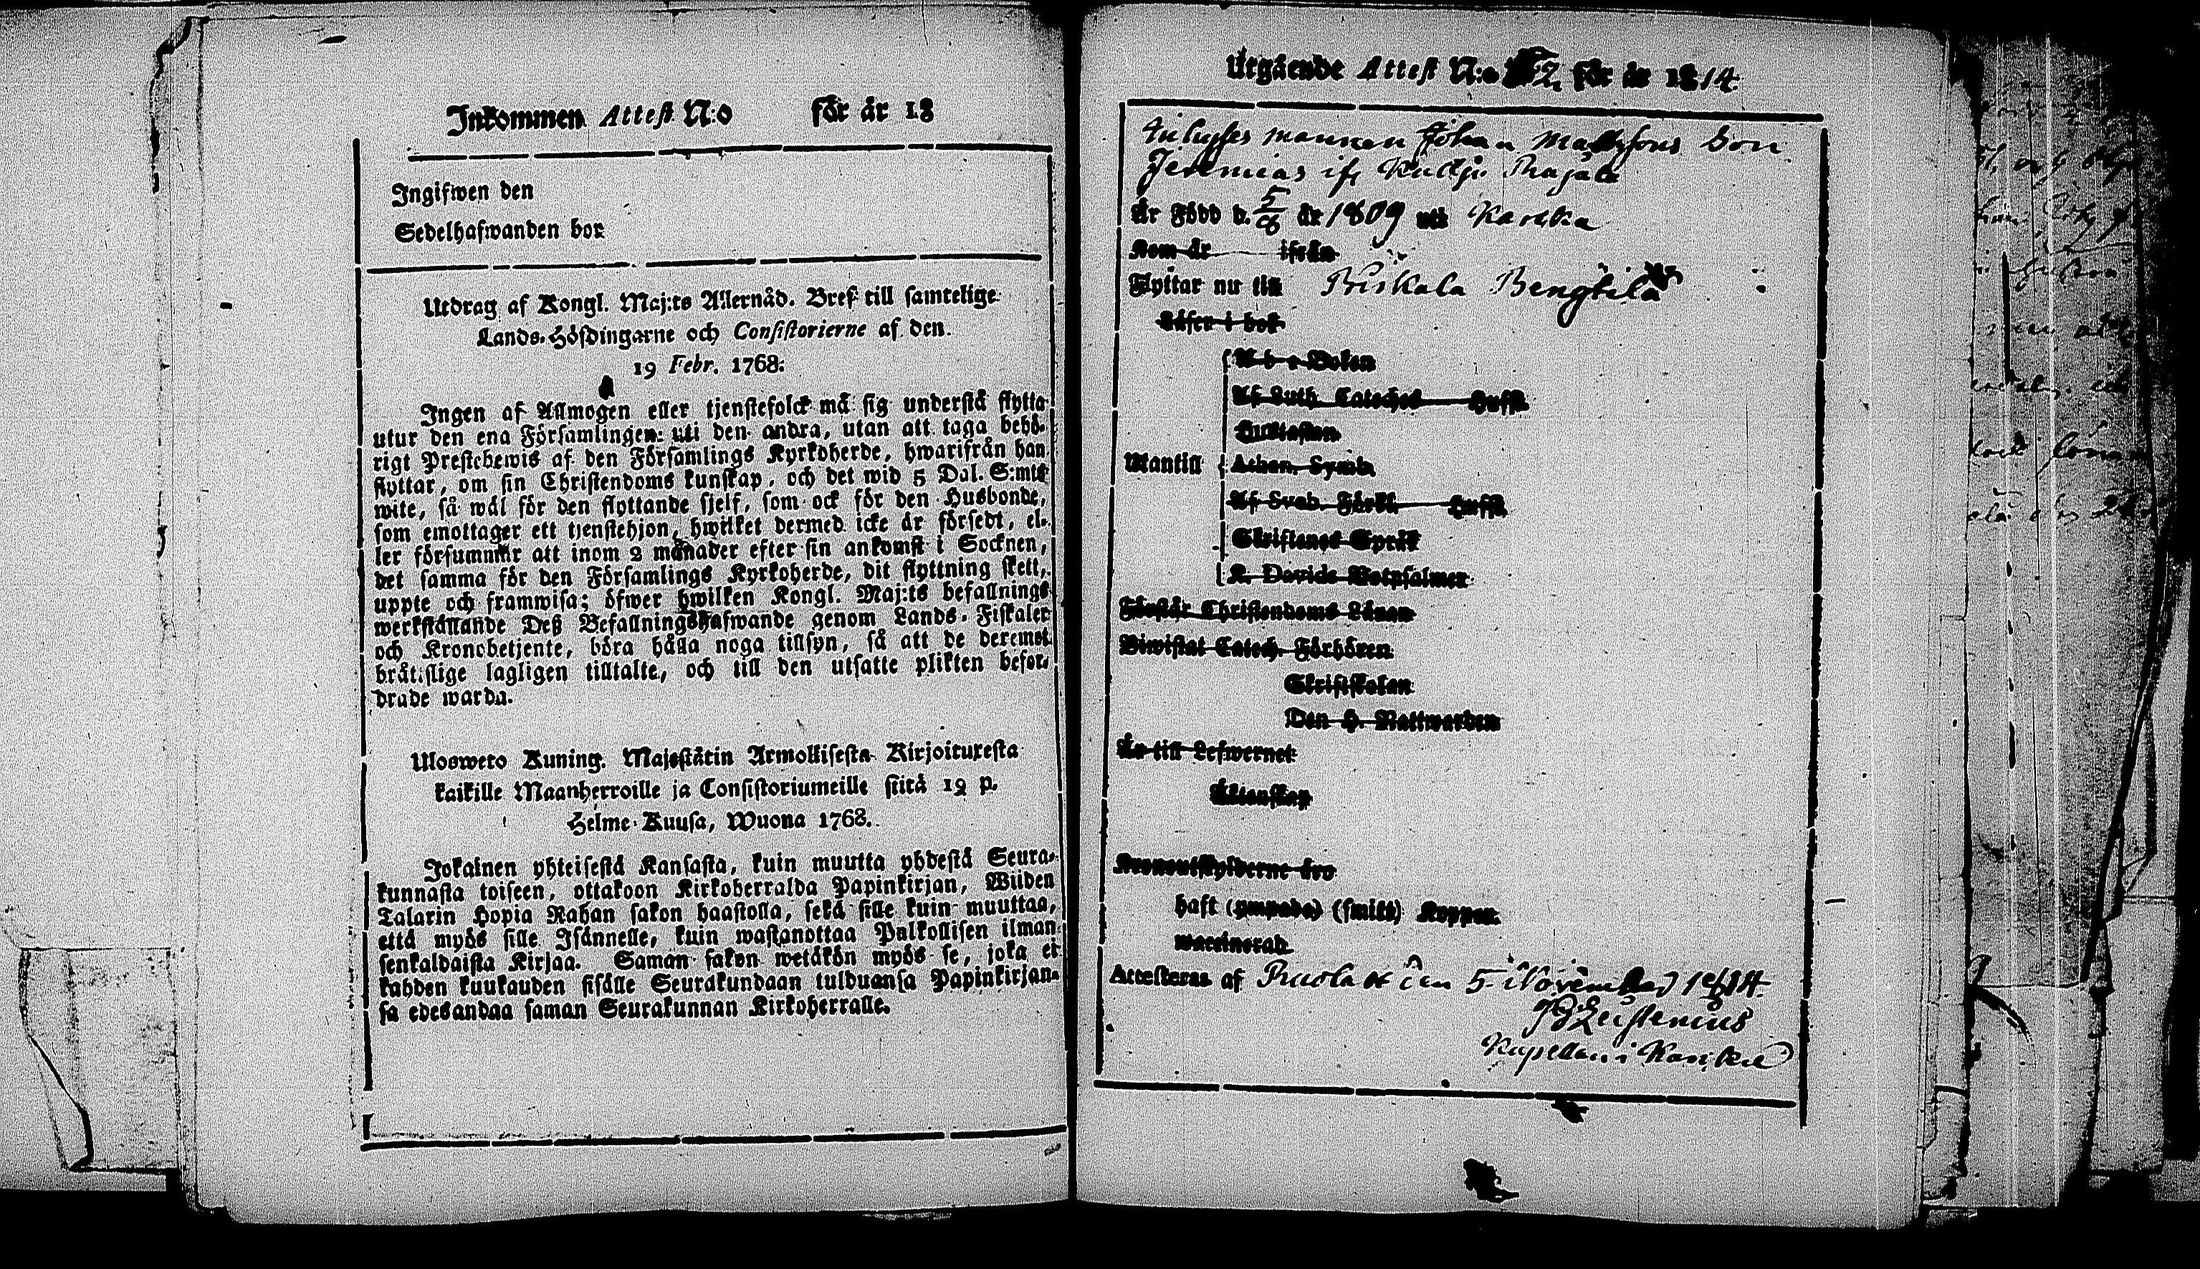 Inkommen Attest N:o för år 18
Ingifwen den
Sedelhafwanden bor
Utdrag af Kongl. Maj:ts Allernåd. Bref till samtelige
Lands-Höfdingarne och Consistorierne af den
19 Febr. 1768:
Ingen af Allmogen eller tjenstefolck må sig understå flytta
utur den ena Församlingen uti den andra, utan att taga behö-
rigt Prestebewis af den Församlings Kyrkoherde, hwarifrån han
flyttar, om sin Christendoms kunskap, och det wid 5 Dal. S:mts
wite, så wäl för den flyttande sjelf, som ock för den Husbonde,
som emottager ett tjenstehjon, hwilket dermed icke är försedt, el-
ler försummar att inom 2 månader efter sin ankomst i Socknen,
det samma för den Församlings Kyrkoherde, dit flyttning skett,
uppte och framwisa; öfwer hwilken Kongl. Maj:ts befallnings
werkställande Deß Befallningshafwande genom Lands-Fiskaler
och Kronobetjente, böra hålla noga tillsyn, så att de deremot
bråtslige lagligen tilltalte, och till den utsatte plikten befor-
drade warda.
Ulosweto Kuning. Majestätin Armollisesta Kirjoituxesta
kaikille Maanherroille ja Consistoriumeille siitä 19 p.
Helme-Kuusa, Wuona 1768.
Jokainen yhteisestä Kansasta, kuin muutta yhdestä Seura-
kunnasta toiseen, ottakoon Kirkoherralda Papinkirjan, Wiiden
Talarin Hopia Rahan sakon haastolla, sekä sille kuin muuttaa,
että myös sille Isännelle, kuin wastanottaa Palkollisen ilman
senkaldaista Kirjaa. Saman sakon wetäkön myös se, joka ei
kahden kuukauden sisälle Seurakundaan tulduansa Papinkirjan-
sa edesandaa saman Seurakunnan Kirkoherralle.
Utgående Attest N:o 2 för år 1814.
Inhysses mannen Johan Mattssons Son
Jeremias ifr Rajala
Är Född d. 5/8 år 1809 uti Karcku
Kom är ifrån
Flyttar nu till Kiskala Bengtilä
Läser i bok
A b c Boken
Af Luth. Cateches Hufft.
Hustaflan
Mantill Athan. Symb.
Af Sveb. Förkl. Hufft.
Skriftenes Språk
K. Davids Botpsalmer
Förstår Christendoms Läran
Biwistat Catech. Förhören
Skriftskolan
Den H. Nattwarden
Är till Lefwernet
Äktenskap
Kronoutskylderne äro
haft (ympade) (smitt) Koppor.
waccinerad
Attesteras af den 5 November 1814.
Kapellan i